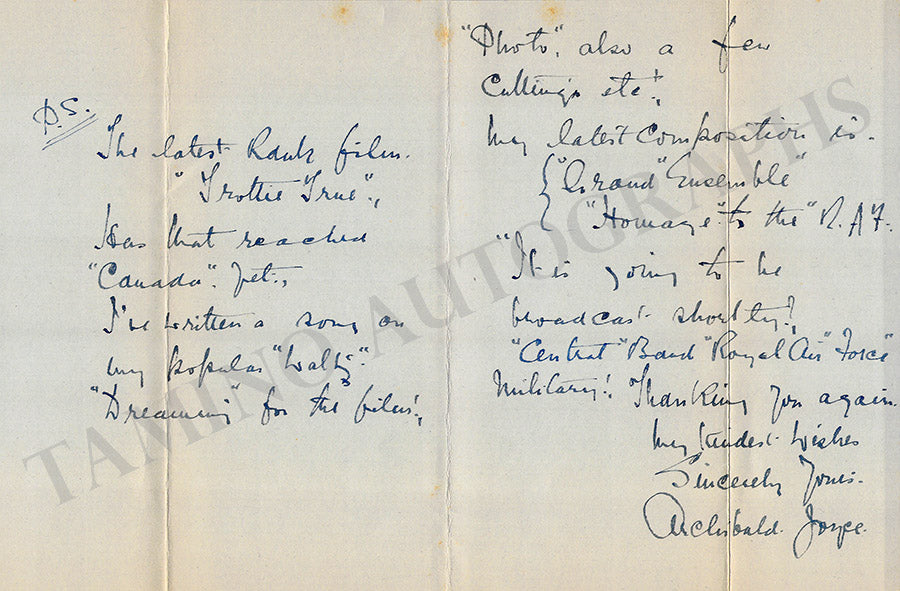 P.S.
The latest Rank film.
"Trottie "True".,
Has that reached
"Canada". yet.,
I've written a song on
my popular "Waltz".
"Dreaming" for the film!.,
"Photo". also a few
Cuttings etc!.,
My latest Composition is.
"Grand" Ensemble"
"Homage" to the "R.A.F.
"It is going to be
broadcast shortly!,
"Central" "Band" "Royal Air" "Force"
Military!. Thanking you again.
My kindest wishes
Sincerely Yours.
Archibald. Joyce.
TAMINO AUTOGRAPHS